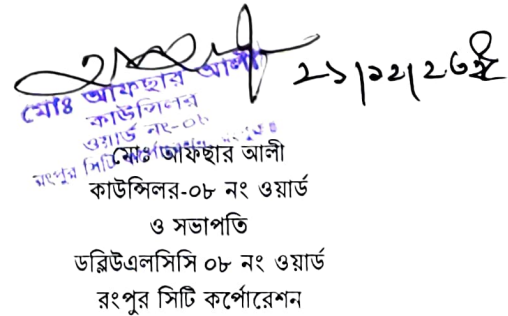 ২১/১২/২০২
মোঃ আফছার আলী
কাউন্সিলর
ওয়ার্ড নং-০৮
রংপুর সিটি
মোঃ আফছার আলী
কাউন্সিলর-০৮ নং ওয়ার্ড
ও সভাপতি
ডব্লিউএলসিসি ০৮ নং ওয়ার্ড
রংপুর সিটি কর্পোরেশন